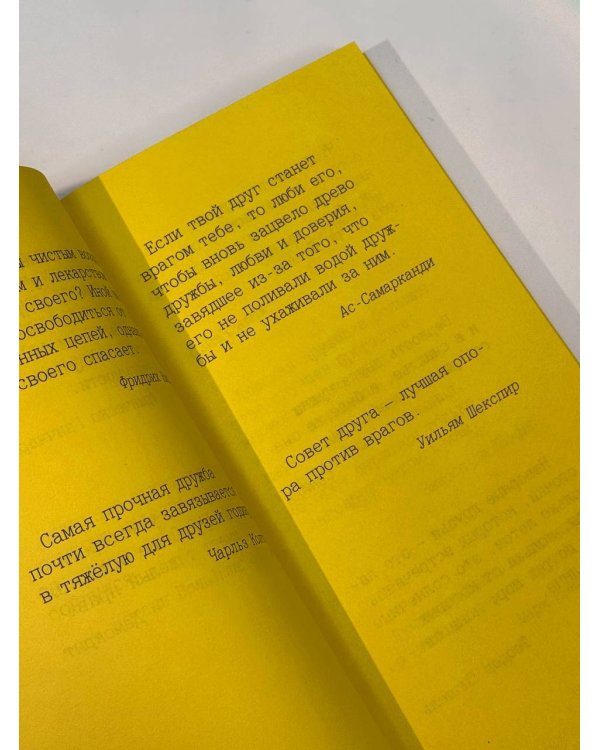 чистым
и лекарство
своего? Иной
освободиться от
цепей,
своего спасает.
Фридрих
Самая прочная дружба
почти всегда завязывается
в тяжёлую для друзей
Чарльз
Если твой друг станет
врагом тебе, то люби его,
чтобы вновь зацвело древо
дружбы, любви и доверия,
завядшее из-за того, что
его не поливали водой друж-
бы и не ухаживали за ним.
Ас-Самарканди
Совет друга — лучшая опо-
ра против врагов.
Уильям Шекспир